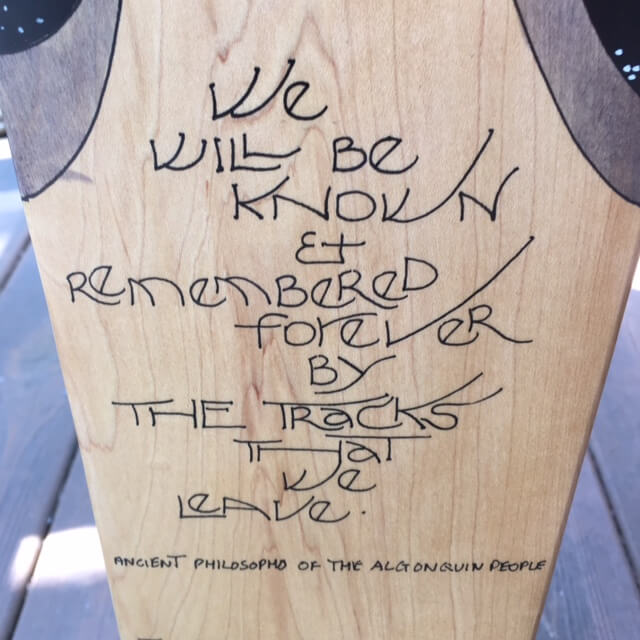 We
WILL BE
KNOWN
&
REMEMBERED
FOREVER
BY
THE TRACKS
THAT
WE
LEAVE.
ANCIENT PHILOSOPHO OF THE ALGONGUIN PEOPLE